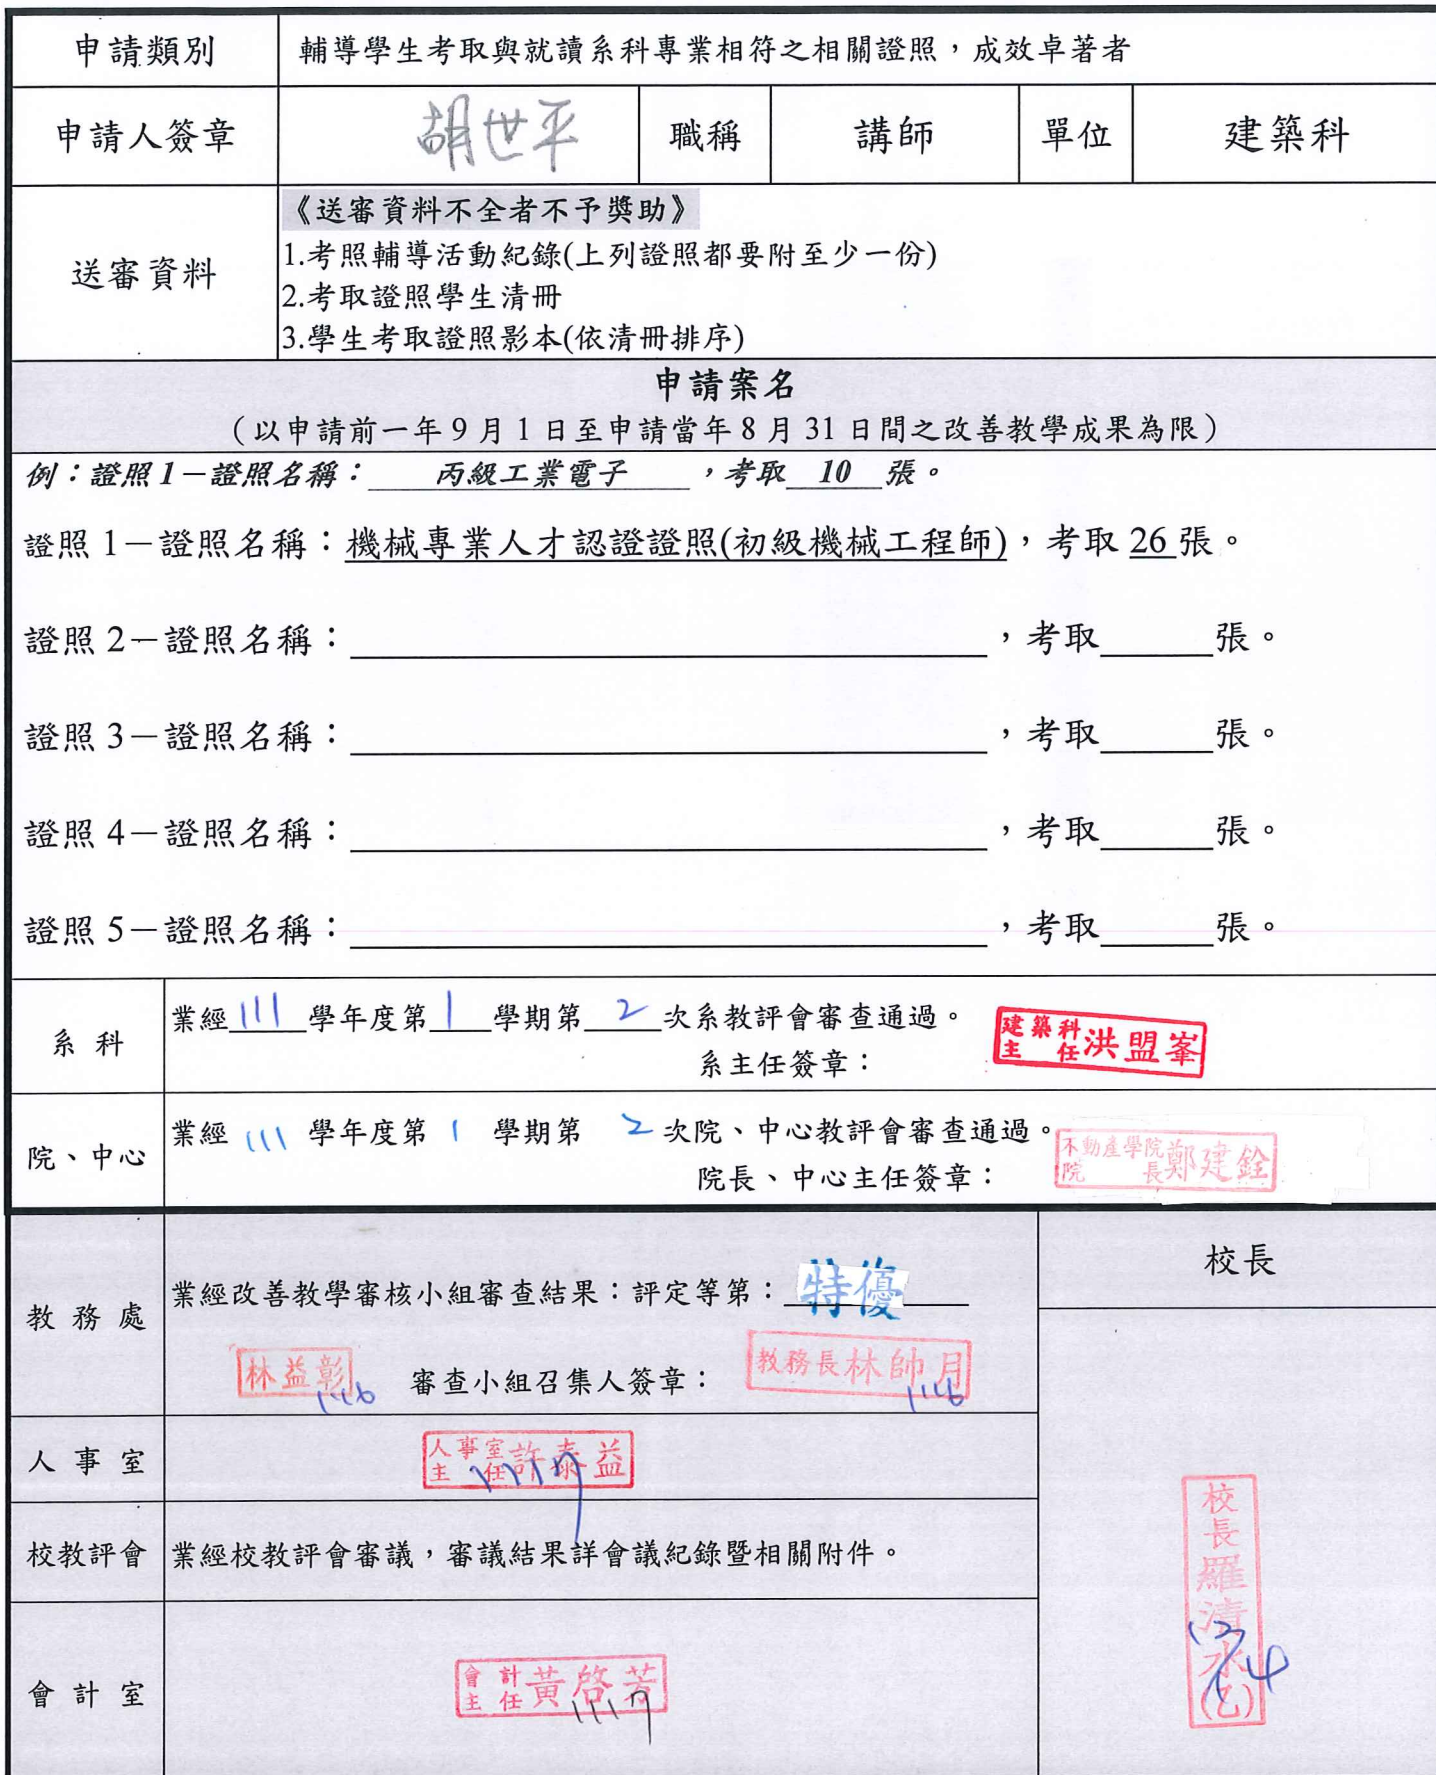 申請類別 輔導學生考取與就讀系科專業相符之相關證照，成效卓著者
申請人簽章 胡世平 職稱 講師 單位 建築科
送審資料
《送審資料不全者不予獎助》
1.考照輔導活動紀錄(上列證照都要附至少一份)
2.考取證照學生清冊
3.學生考取證照影本(依清冊排序)
申請案名
（以申請前一年 9 月 1 日至申請當年 8 月 31 日間之改善教學成果為限）
例：證照 1－證照名稱：丙級工業電子，考取 10 張。
證照 1－證照名稱：機械專業人才認證證照(初級機械工程師)，考取 26 張。
證照 2－證照名稱：，考取 張。
證照 3－證照名稱：，考取 張。
證照 4－證照名稱：，考取 張。
證照 5－證照名稱：，考取 張。
系科 業經 111 學年度第 1 學期第 2 次系教評會審查通過。
系主任簽章： 建築科主任 洪盟峯
院、中心 業經 111 學年度第 1 學期第 2 次院、中心教評會審查通過。
院長、中心主任簽章： 不動產學院院長 鄭建銓
校長
教務處 業經改善教學審核小組審查結果：評定等第：特優
林益彰 審查小組召集人簽章： 教務長林帥月
人事室 人事室主任 許泰益
校教評會 業經校教評會審議，審議結果詳會議紀錄暨相關附件。
校長羅清水(乙)
會計室 會計主任 黃啓芳